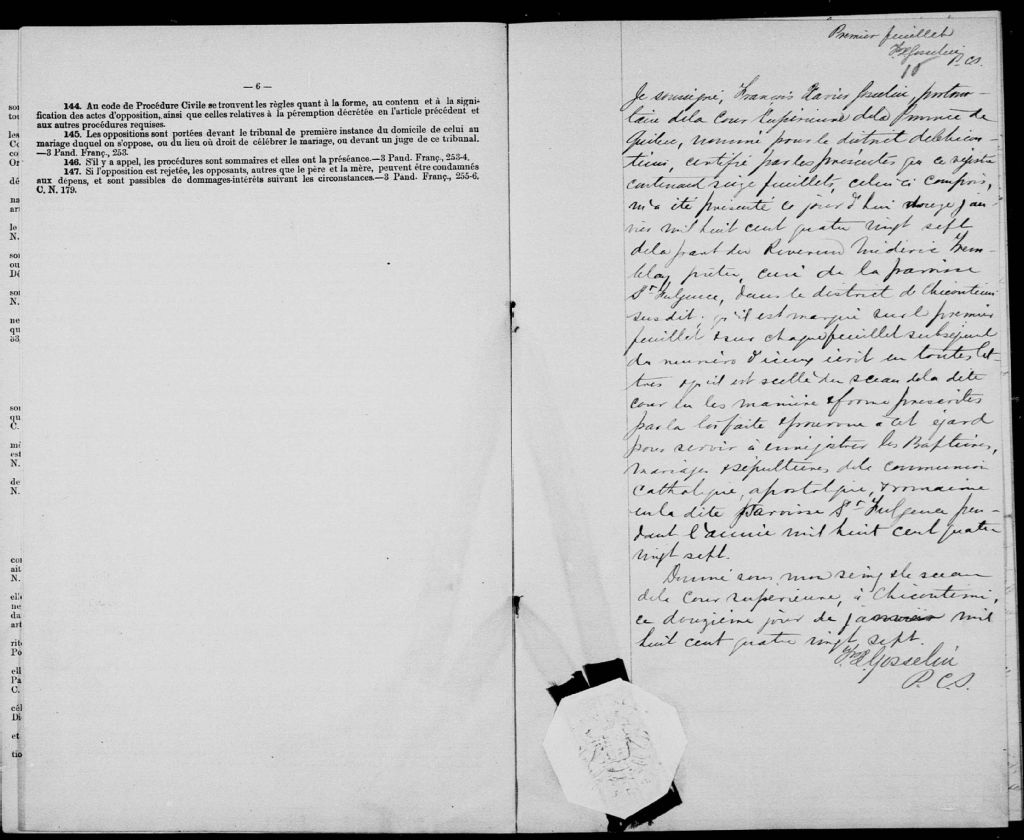 — 6 —
144. Au code de Procédure Civile se trouvent les règles quant à la forme, au contenu et à la signi-
fication des actes d'opposition, ainsi que celles relatives à la péremption décrétée en l'article précédent et
aux autres procédures requises.
145. Les oppositions sont portées devant le tribunal de première instance du domicile de celui au
mariage duquel on s'oppose, ou du lieu où droit de célébrer le mariage, ou devant un juge de ce tribunal.
—3 Pand. Franç., 253.
146. S'il y a appel, les procédures sont sommaires et elles ont la préséance.—3 Pand. Franç., 253-4.
147. Si l'opposition est rejetée, les opposants, autres que le père et la mère, peuvent être condamnés
aux dépens, et sont passibles de dommages-intérêts suivant les circonstances.—3 Pand. Franç., 255-6.
C. N. 179.
Premier feuillet
FX Gosselin
P.C.S.
Je soussigné, François Xavier Gosselin, protono-
taire de la Cour Supérieure de la Province de
Québec, nommé pour le district de Chicou-
timi, certifie par les présentes que ce registre
contenant seize feuillets, celui-ci compris,
m'a été présenté ce jour d'hui douze jan-
vier mil huit cent quatre vingt sept
de la part du Révérend Médéric Trem-
blay, prêtre, curé de la paroisse
St Fulgence, dans le district de Chicoutimi
susdit. qu'il est marqué sur le premier
feuillet & sur chaque feuillet subséquent
du numéro d'iceux écrit en toutes let-
tres & qu'il est scellé du sceau de la dite
cour en les manière & forme prescrites
par la loi faite & pourvue à cet égard
pour servir à enrégistrer les Baptêmes,
mariages & sépultures de la communion
Catholique, apostolique, & romaine
en la dite Paroisse St Fulgence pen-
dant l'année mil huit cent quatre
vingt sept.
Donné sous mon seing & le sceau
de la Cour supérieure, à Chicoutimi,
ce douzième jour de janvier mil
huit cent quatre vingt sept.
FX Gosselin
P.C.S.